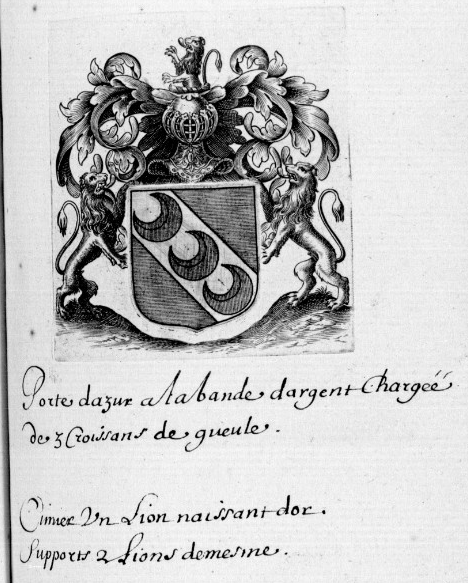 Porte dazur a la bande dargent Chargéé
de 3 Croissans de gueule.
Cimier Un Lion naissant dor.
Supports 2 Lions demesme.